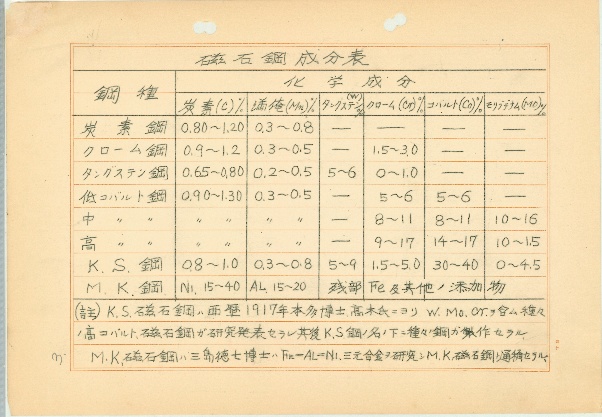 磁石鋼成分表
鋼種 化学成分
炭素(C)% 満俺(Mn)% タングステン(W)% クローム(Cr)% コバルト(Co)% モリブデナム(Mo)%
炭素鋼 0.80~1.20 0.3~0.8 — — — —
クローム鋼 0.9~1.2 0.3~0.5 — 1.5~3.0 — —
タングステン鋼 0.65~0.80 0.2~0.5 5~6 0~1.0 — —
低コバルト鋼 0.90~1.30 0.3~0.5 — 5~6 5~6 —
中 〃 〃 〃 〃 — 8~11 8~11 10~16
高 〃 〃 〃 〃 — 9~17 14~17 10~1.5
K.S.鋼 0.8~1.0 0.3~0.8 5~9 1.5~5.0 30~40 0~4.5
M.K.鋼 Ni. 15~40 AL. 15~20 残部 Fe及其他ノ添加物
(註) K.S.磁石鋼ハ西暦1917年本多博士高木氏ニヨリ W. Mo. Cr.ヲ含ム種々
ノ高コバルト磁石鋼ガ研究発表セラレ其後K.S.鋼ノ名ノ下ニ種々ノ鋼ガ製作セラル
M.K.磁石鋼ハ三島徳七博士ハFe—AL—Ni.三元合金ヲ研究シM.K.磁石鋼ト通称セラル